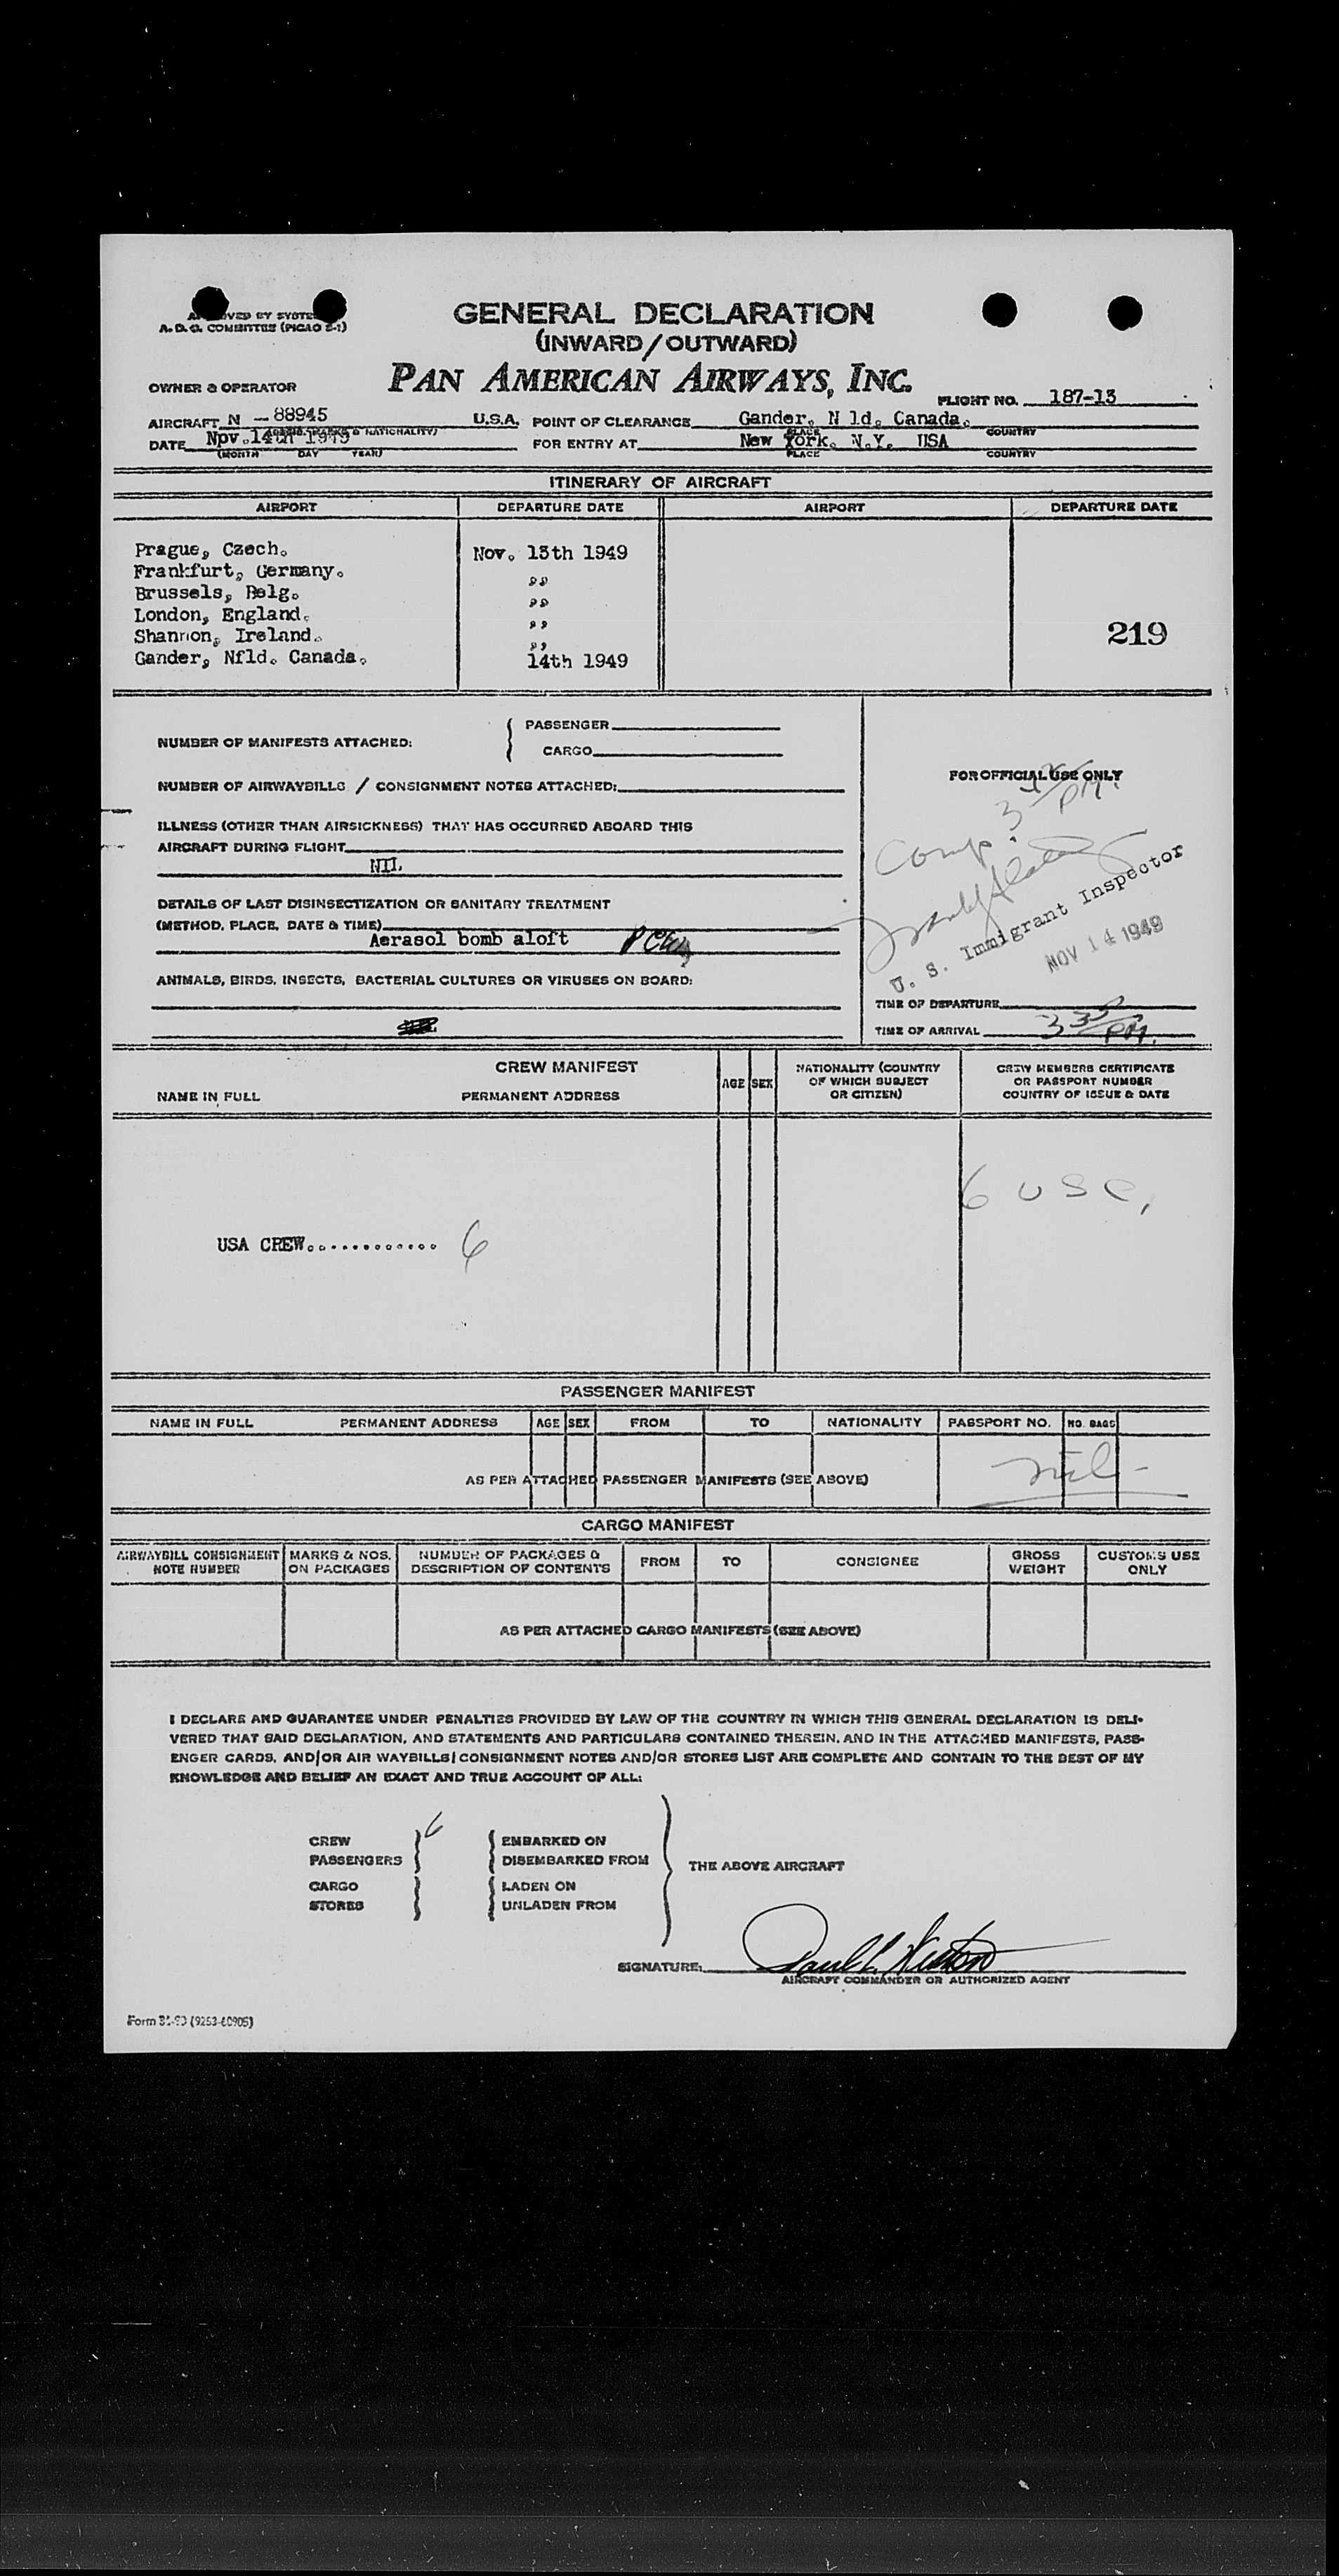 GENERAL DECLARATION
(INWARD/OUTWARD)
A. D. G. COMMITTEE (PICAO E-1)
PAN AMERICAN AIRWAYS, INC.
OWNER & OPERATOR
FLIGHT NO. 187-13
AIRCRAFT N - 88945 U.S.A. POINT OF CLEARANCE Gander, N ld. Canada.
NATIONALITY) PLACE COUNTRY
DATE Npv.14th 1949 FOR ENTRY AT New York. N.Y. USA
(MONTH DAY YEAR) PLACE COUNTRY
ITINERARY OF AIRCRAFT
AIRPORT DEPARTURE DATE AIRPORT DEPARTURE DATE
Prague, Czech. Nov. 13th 1949
Frankfurt, Germany. ,,
Brussels, Belg. ,,
London, England. ,,
Shannon, Ireland. ,,
Gander, Nfld. Canada. 14th 1949
219
NUMBER OF MANIFESTS ATTACHED: PASSENGER
CARGO
NUMBER OF AIRWAYBILLS / CONSIGNMENT NOTES ATTACHED:
ILLNESS (OTHER THAN AIRSICKNESS) THAT HAS OCCURRED ABOARD THIS
AIRCRAFT DURING FLIGHT
NIL
DETAILS OF LAST DISINSECTIZATION OR SANITARY TREATMENT
(METHOD, PLACE, DATE & TIME)
Aerasol bomb aloft
ANIMALS, BIRDS, INSECTS, BACTERIAL CULTURES OR VIRUSES ON BOARD:
FOR OFFICIAL USE ONLY
Comp. 3 PM.
U. S. Immigrant Inspector
NOV 14 1949
TIME OF DEPARTURE
TIME OF ARRIVAL 3 35 PM.
CREW MANIFEST
NAME IN FULL PERMANENT ADDRESS AGE SEX NATIONALITY (COUNTRY OF WHICH SUBJECT OR CITIZEN) CREW MEMBERS CERTIFICATE OR PASSPORT NUMBER COUNTRY OF ISSUE & DATE
6 USC.
USA CREW............ 6
PASSENGER MANIFEST
NAME IN FULL PERMANENT ADDRESS AGE SEX FROM TO NATIONALITY PASSPORT NO. NO. BAGS
AS PER ATTACHED PASSENGER MANIFESTS (SEE ABOVE) nil-
CARGO MANIFEST
AIRWAYBILL CONSIGNMENT NOTE NUMBER MARKS & NOS. ON PACKAGES NUMBER OF PACKAGES & DESCRIPTION OF CONTENTS FROM TO CONSIGNEE GROSS WEIGHT CUSTOMS USE ONLY
AS PER ATTACHED CARGO MANIFESTS (SEE ABOVE)
I DECLARE AND GUARANTEE UNDER PENALTIES PROVIDED BY LAW OF THE COUNTRY IN WHICH THIS GENERAL DECLARATION IS DELI-
VERED THAT SAID DECLARATION, AND STATEMENTS AND PARTICULARS CONTAINED THEREIN, AND IN THE ATTACHED MANIFESTS, PASS-
ENGER CARDS, AND/OR AIR WAYBILLS/CONSIGNMENT NOTES AND/OR STORES LIST ARE COMPLETE AND CONTAIN TO THE BEST OF MY
KNOWLEDGE AND BELIEF AN EXACT AND TRUE ACCOUNT OF ALL:
CREW 6 EMBARKED ON
PASSENGERS DISEMBARKED FROM
THE ABOVE AIRCRAFT
CARGO LADEN ON
STORES UNLADEN FROM
SIGNATURE:
AIRCRAFT COMMANDER OR AUTHORIZED AGENT